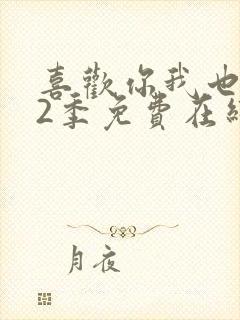 喜歡你我也
2季免費在
月夜